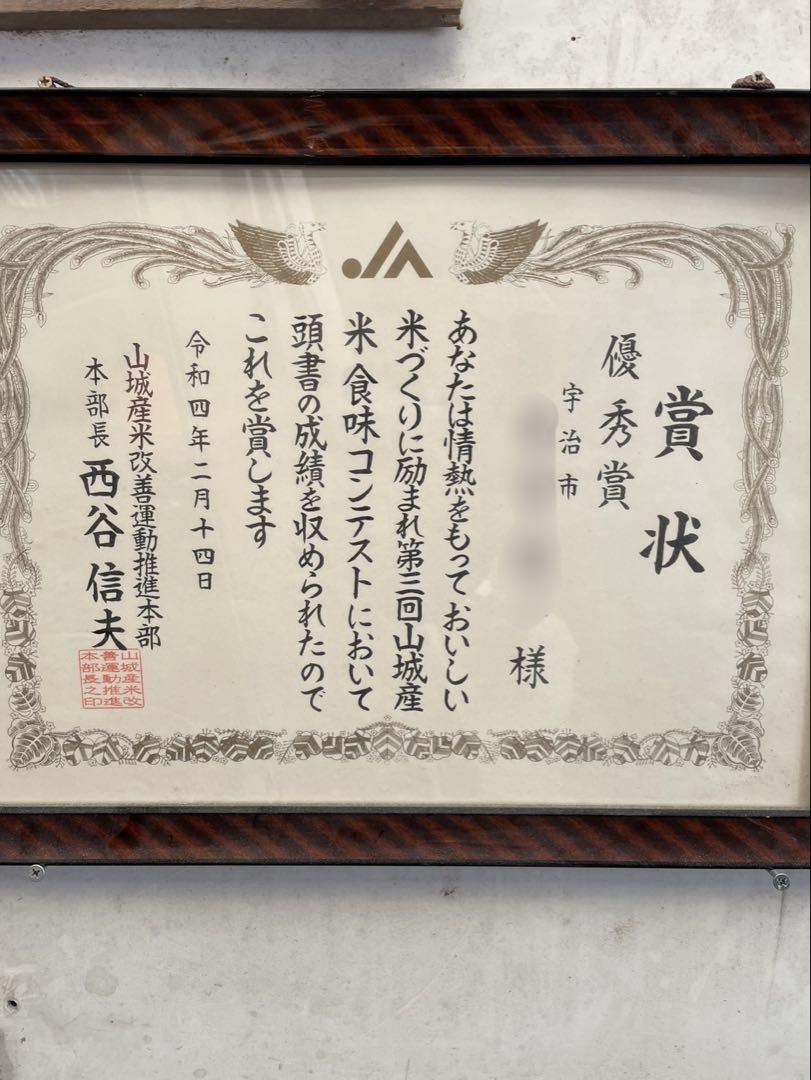 賞状
優秀賞
宇治市
様
あなたは情熱をもっておいしい
米づくりに励まれ第三回山城産
米食味コンテストにおいて
頭書の成績を収められたので
これを賞します
令和四年二月十四日
山城産米改善運動推進本部
本部長 西谷信夫
山城産米改
善運動推進
本部長之印
JA